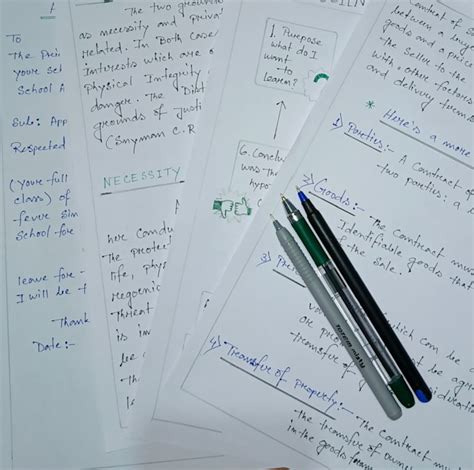 To
The Prin
your scl
School A
Sub:- App
Respected
(your full
class) of
fever sin
School for
leave for -
I will be t
Thank
Date:-
The two ground
as necessity and Priva
related. In Both Case
Interests which are
Physical Integrity
danger. The
grounds of Justi
(Snyman C.R
NECESSITY
here Condu
The protec
life, phys
Threat
is im
be
the
1. Purpose
what do I
want to
learn?
6. Conclu
was the
hypo
Contract of S
between a
goods and a price
the seller to the
with other factors
and delivery terms
* Here's a more
1) Parties:- A Contract of
two parties: a
2) Goods:- The Contract mu
Identifiable goods that
of the sale.
3) Pri
which can be
or
transfer of
4) Transfer of property:- The Contract mu
the transfer of owner
in the goods from